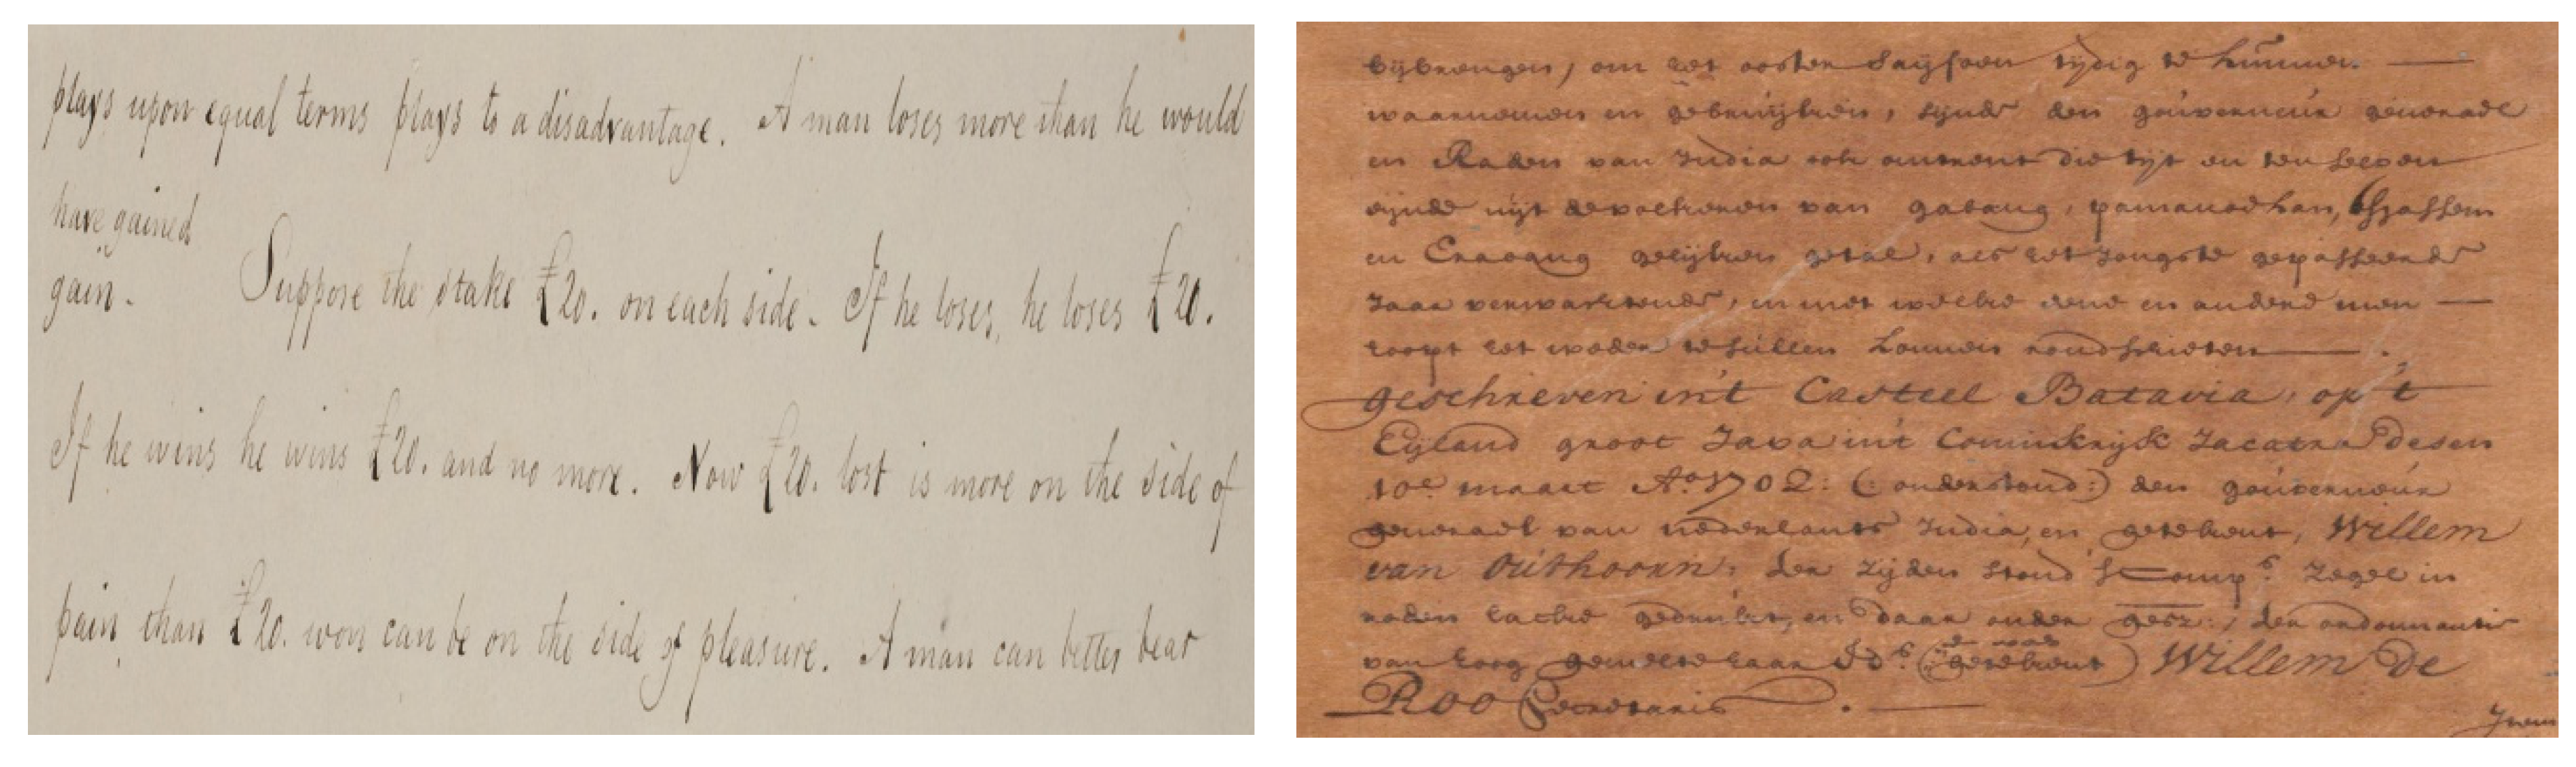 plays upon equal terms plays to a disadvantage. A man loses more than he would
have gained
gain. Suppose the stake £20. on each side. If he loses, he loses £20.
If he wins he wins £20. and no more. Now £20. lost is more on the side of
pain, than £20. won can be on the side of pleasure. A man can better bear
bijbrengen, om het ooster saijsoen tijdig te kunnen
waarnemen en gebruijken, sijnde den gouverneur generael
en Raden van India ook omtrent die tijt en ten selven
eijnde uijt de volkeren van gabang, pamanoekan,
en gelijken getal, als het jongste gepasseerde
Jaar verwachtende, en met welke eene en andere men
hoopt het weder te sullen konnen rondschieten.
geschreven in't Casteel Batavia, op 't
Eijland groot Java in't Coninkrijk Jacatra desen
10e. maart Ao. 1702: (:onderstond:) den gouverneur
generael van nederlants India, en getekent, Willem
van Outhoorn, ter zijden stond 's Comps. Zegel in
roden lacke gedrukt, en daar onder gesz:, ter ordonnantie
van hoog gemelte haar Eds. (was getekent) Willem De
Roo Secretaris.